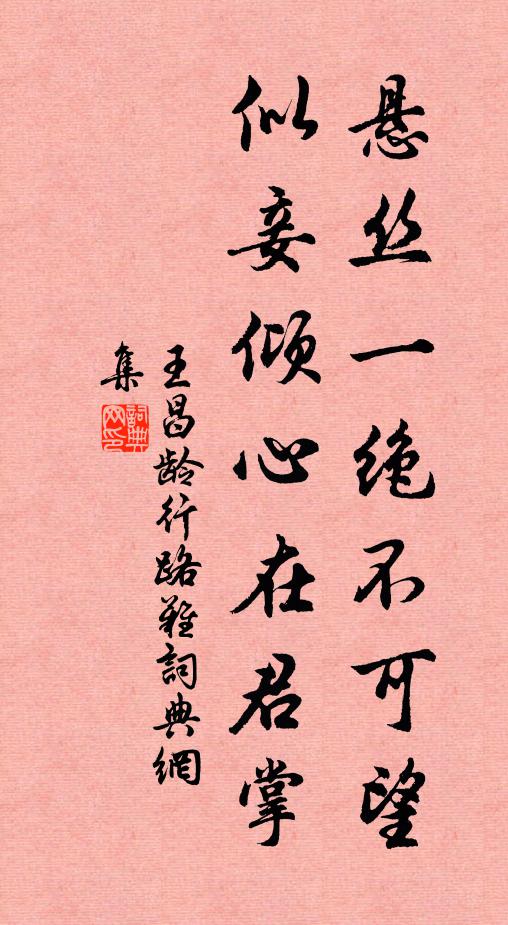 悬丝一绝不可望
似妾倾心在君掌
王昌龄行路难詞典網
集
詞典
网印